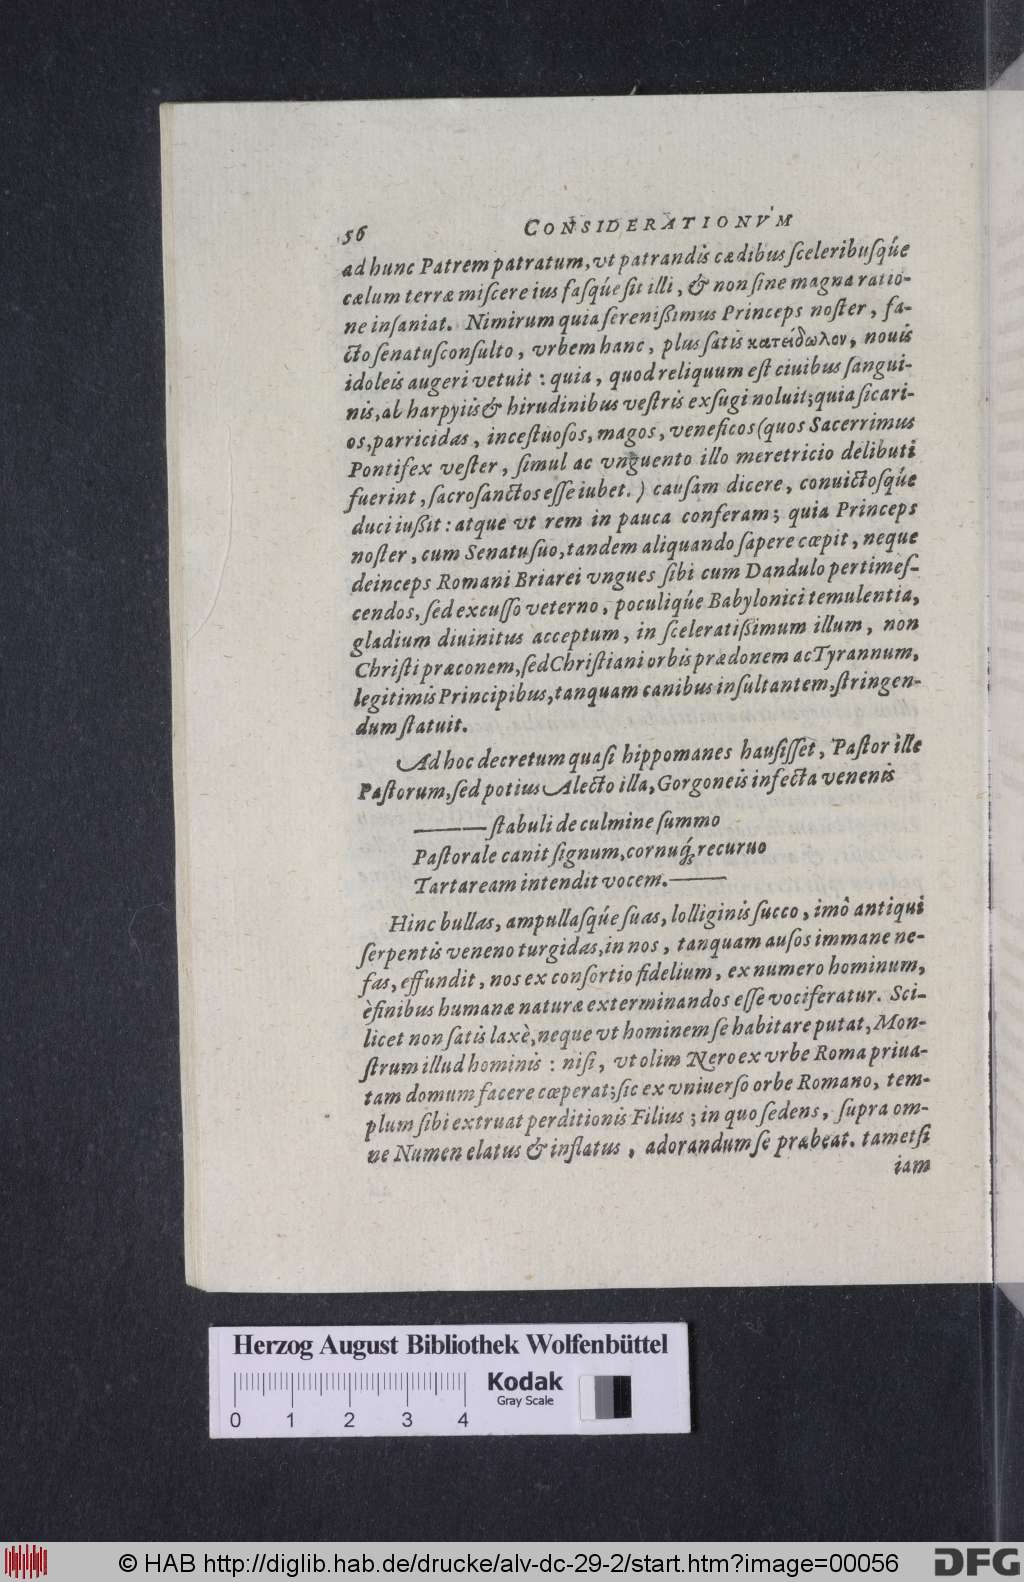 56 CONSIDERATIONVM
ad hunc Patrem patratum, vt patrandis cædibus sceleribusq́ue
cælum terræ miscere ius fasq́ue sit illi, & non sine magna ratio-
ne insaniat. Nimirum quia serenißimus Princeps noster, fa-
cto senatusconsulto, vrbem hanc, plus satis κατείδωλον, nouis
idoleis augeri vetuit : quia, quod reliquum est ciuibus sangui-
nis, al harpyiis & hirudinibus vestris exsugi noluit; quia sicari-
os, parricidas, incestuosos, magos, veneficos (quos Sacerrimus
Pontifex vester, simul ac vnguento illo meretricio delibuti
fuerint, sacrosanctos esse iubet.) causam dicere, conuictosq́ue
duci iußit : atque vt rem in pauca conferam; quia Princeps
noster, cum Senatu suo, tandem aliquando sapere cœpit, neque
deinceps Romani Briarei vngues sibi cum Dandulo pertimes-
cendos, sed excusso veterno, poculiq́ue Babylonici temulentia,
gladium diuinitus acceptum, in sceleratißimum illum, non
Christi præconem, sed Christiani orbis prædonem ac Tyrannum,
legitimis Principibus, tanquam canibus insultantem, stringen-
dum statuit.
Ad hoc decretum quasi hippomanes hausisset, Pastor ille
Pastorum, sed potius Alecto illa, Gorgoneis infecta venenis
——— stabuli de culmine summo
Pastorale canit signum, cornuq́; recuruo
Tartaream intendit vocem. ———
Hinc bullas, ampullasq́ue suas, lolliginis succo, imò antiqui
serpentis veneno turgidas, in nos, tanquam ausos immane ne-
fas, effundit, nos ex consortio fidelium, ex numero hominum,
è finibus humanæ naturæ exterminandos esse vociferatur. Sci-
licet non satis laxè, neque vt hominem se habitare putat, Mon-
strum illud hominis : nisi, vt olim Nero ex vrbe Roma priua-
tam domum facere cœperat; sic ex vniuerso orbe Romano, tem-
plum sibi extruat perditionis Filius ; in quo sedens, supra om-
ne Numen elatus & inflatus, adorandum se præbeat. tametsi
iam
Herzog August Bibliothek Wolfenbüttel
Kodak
Gray Scale
0 1 2 3 4
© HAB http://diglib.hab.de/drucke/alv-dc-29-2/start.htm?image=00056
DFG